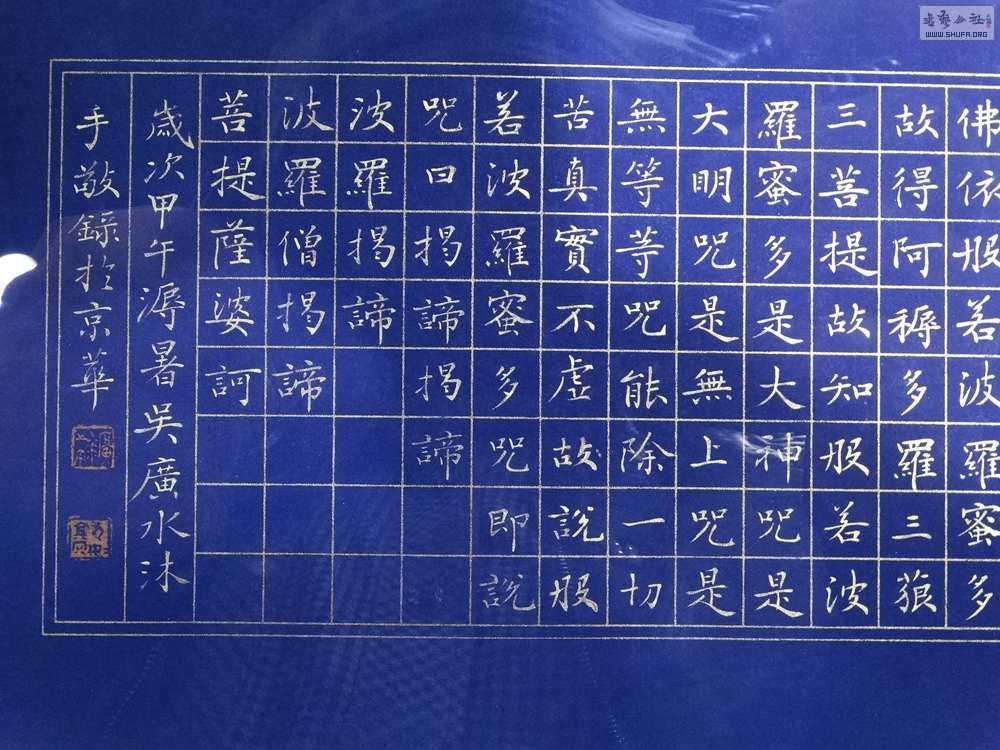 佛依般若波羅蜜多
故得阿耨多羅三藐
三菩提故知般若波
羅蜜多是大神咒是
大明咒是無上咒是
無等等咒能除一切
苦真實不虛故說般
若波羅蜜多咒即說
咒曰揭諦揭諦
波羅揭諦
波羅僧揭諦
菩提薩婆訶
歲次甲午溽暑吳廣水沐
手敬錄於京華
WWW.SHUFA.ORG